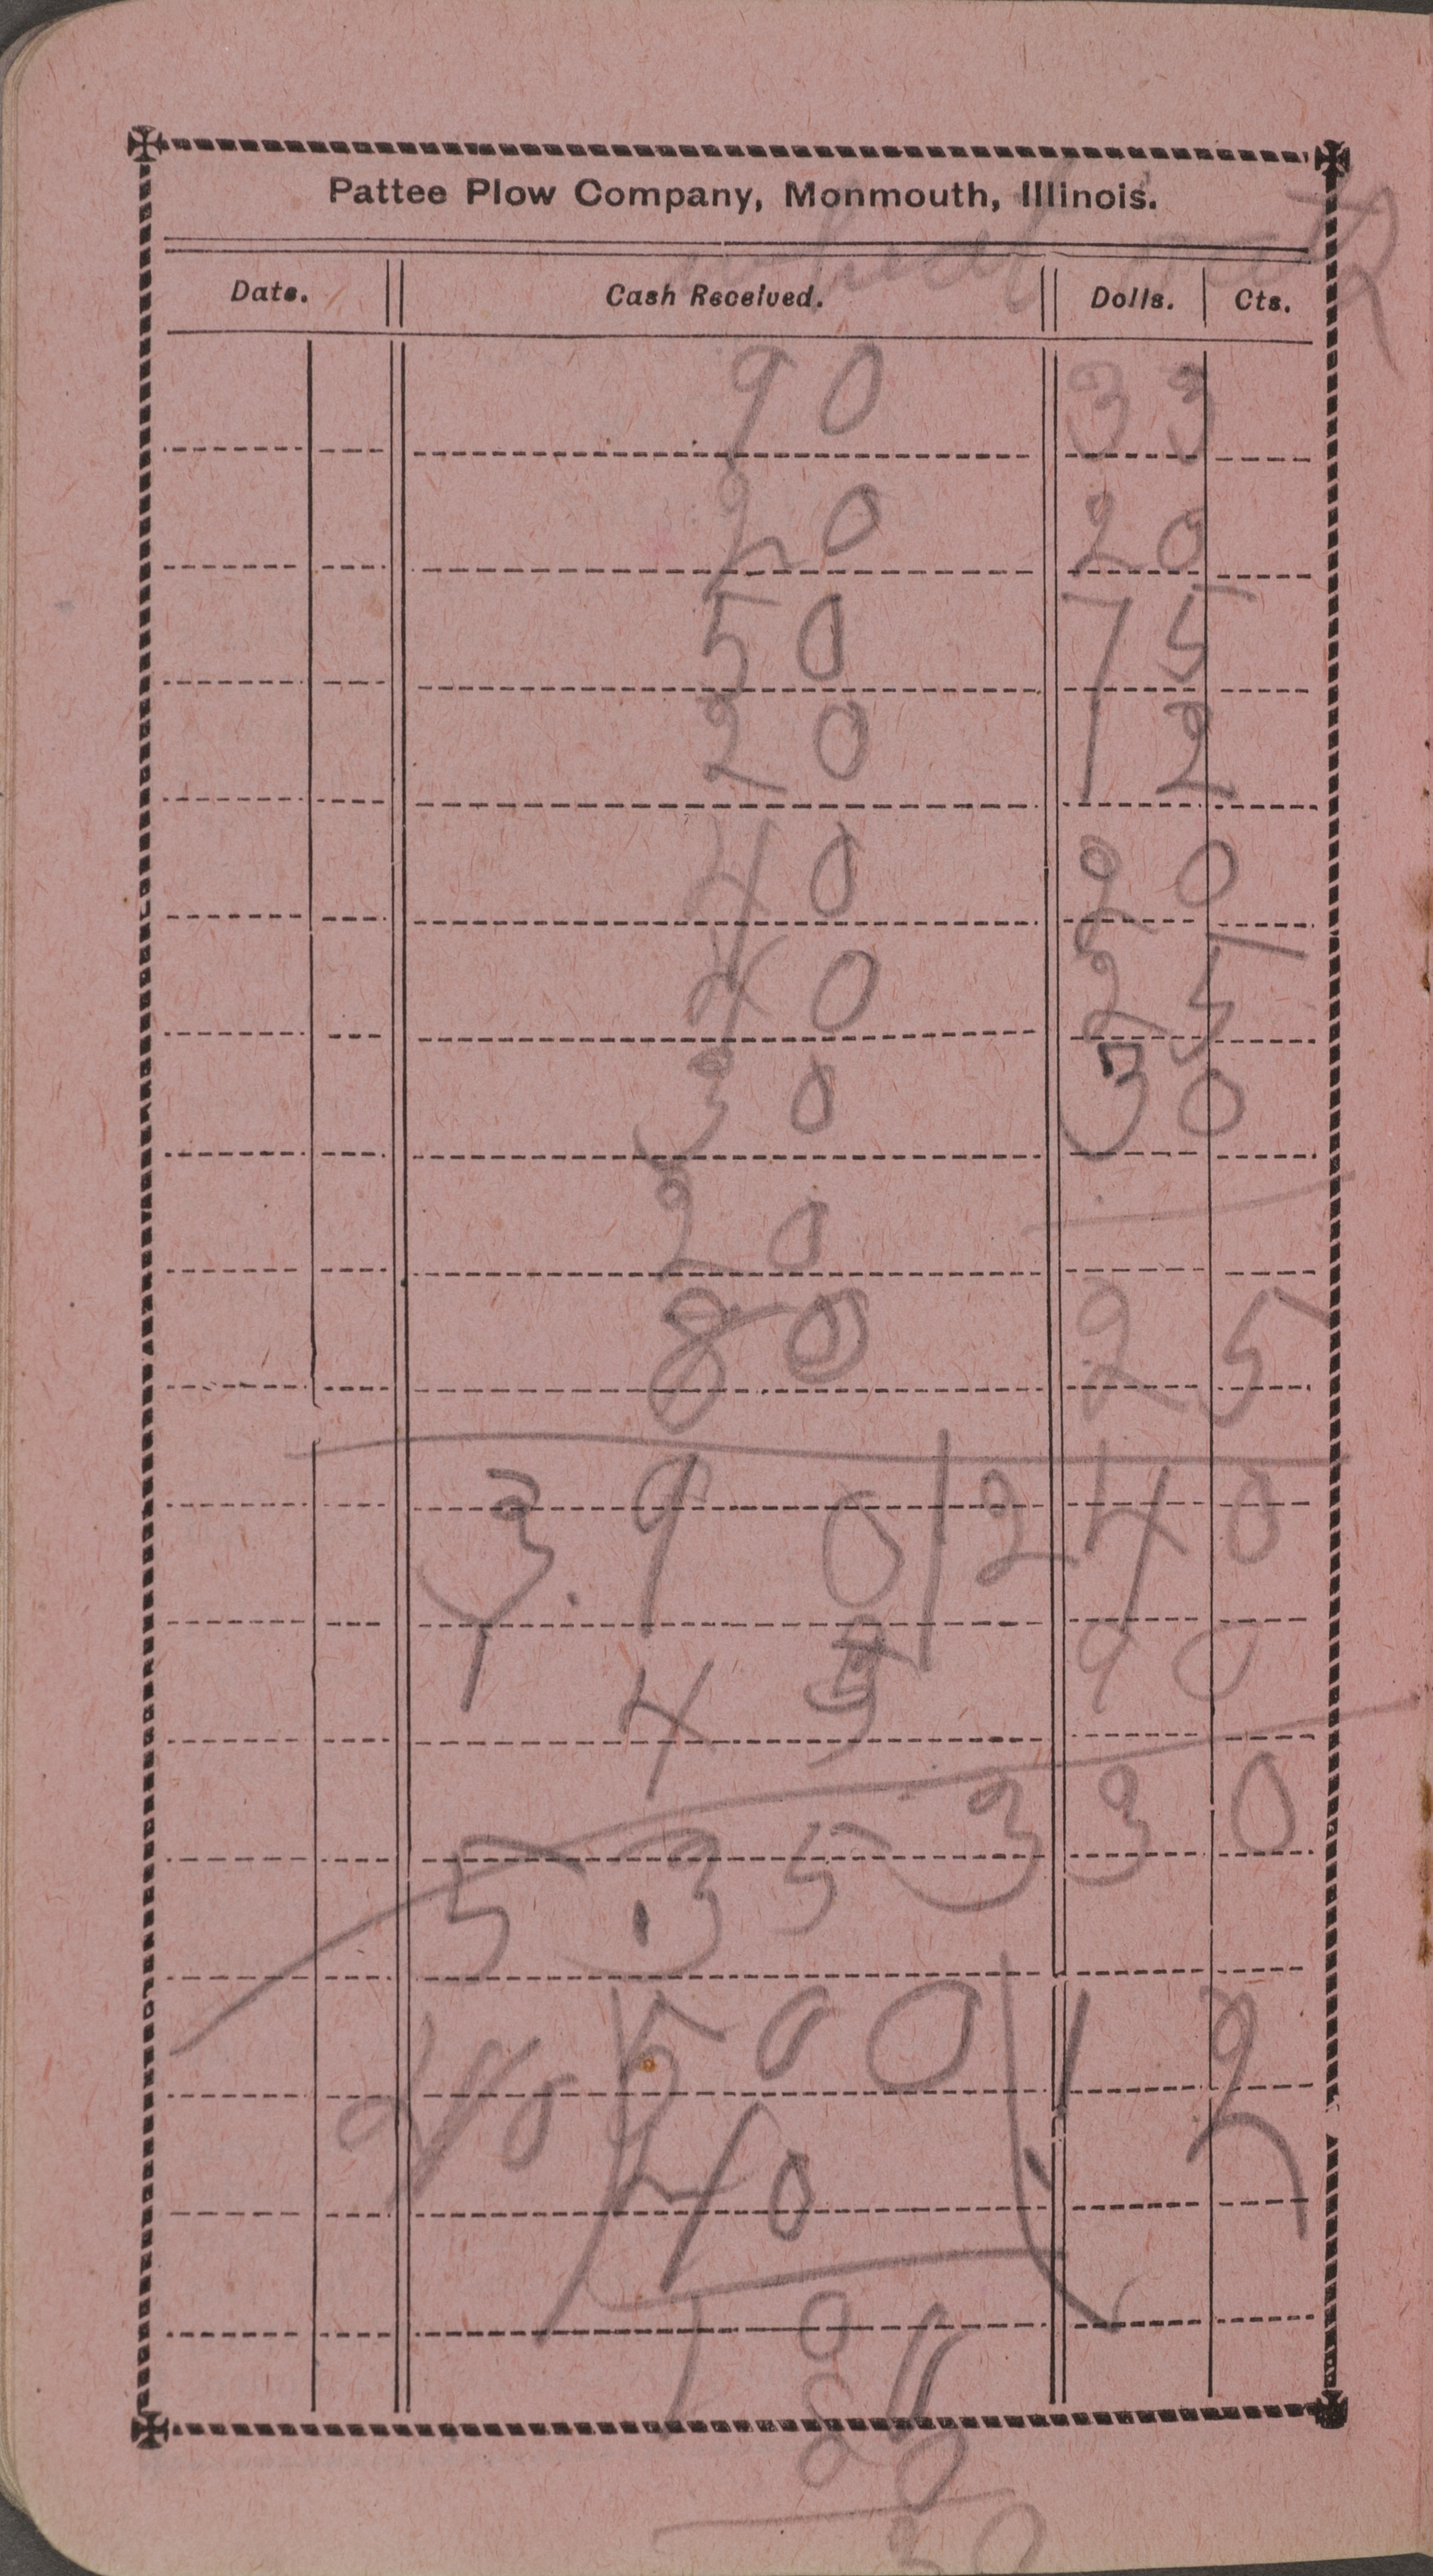 Pattee Plow Company, Monmouth, Illinois.
Date. Cash Received. Dolls. Cts.
90 33
20 20
50 75
20 12
40 20
40 25
30 30
20
80 25
3.90 240
1 45 90
330
5.35
500 12
40
1
80
20